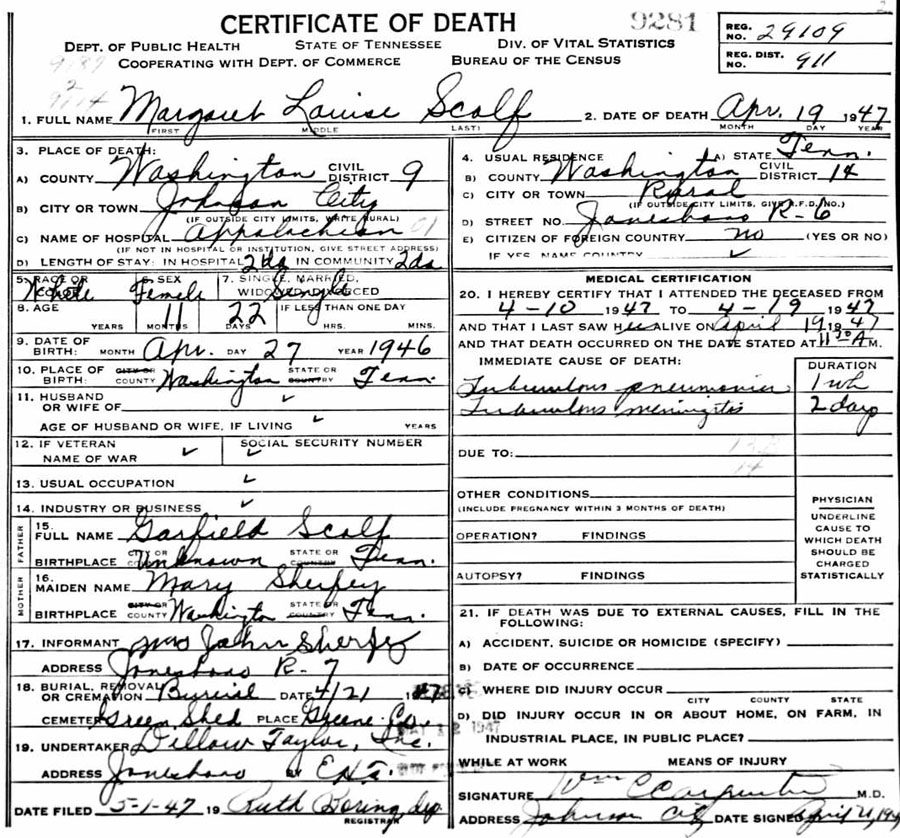 CERTIFICATE OF DEATH
9281
REG. NO. 29109
DEPT. OF PUBLIC HEALTH STATE OF TENNESSEE DIV. OF VITAL STATISTICS
COOPERATING WITH DEPT. OF COMMERCE BUREAU OF THE CENSUS
REG. DIST. NO. 911
1. FULL NAME Margaret Louise Scalf 2. DATE OF DEATH Apr. 19 1947
(FIRST MIDDLE LAST) MONTH DAY YEAR
3. PLACE OF DEATH:
A) COUNTY Washington CIVIL DISTRICT 9
B) CITY OR TOWN Johnson City
(IF OUTSIDE CITY LIMITS, WRITE RURAL)
C) NAME OF HOSPITAL Appalachian 01
(IF NOT IN HOSPITAL OR INSTITUTION, GIVE STREET ADDRESS)
D) LENGTH OF STAY: IN HOSPITAL 2da IN COMMUNITY 2da
4. USUAL RESIDENCE A) STATE Tenn.
B) COUNTY Washington CIVIL DISTRICT 14
C) CITY OR TOWN Rural
(IF OUTSIDE CITY LIMITS, GIVE R.F.D. NO.)
D) STREET NO. Jonesboro R-6
E) CITIZEN OF FOREIGN COUNTRY no (YES OR NO)
IF YES, NAME COUNTRY ✓
5. RACE OR COLOR White 6. SEX Female 7. SINGLE, MARRIED, WIDOWED, DIVORCED Single
8. AGE 11 22 IF LESS THAN ONE DAY
YEARS MONTHS DAYS HRS. MINS.
9. DATE OF BIRTH: MONTH Apr. DAY 27 YEAR 1946
10. PLACE OF BIRTH: CITY OR COUNTY Washington STATE OR COUNTRY Tenn.
11. HUSBAND OR WIFE OF ✓
AGE OF HUSBAND OR WIFE, IF LIVING ✓ YEARS
12. IF VETERAN NAME OF WAR ✓ SOCIAL SECURITY NUMBER ✓
13. USUAL OCCUPATION ✓
14. INDUSTRY OR BUSINESS ✓
FATHER
15. FULL NAME Garfield Scalf
BIRTHPLACE CITY OR COUNTY Unknown STATE OR COUNTRY Tenn.
MOTHER
16. MAIDEN NAME Mary Sherfey
BIRTHPLACE CITY OR COUNTY Washington STATE OR COUNTRY Tenn.
17. INFORMANT Mrs John Sherfey
ADDRESS Jonesboro R-7
18. BURIAL, REMOVAL OR CREMATION Burial DATE 4/21
CEMETERY Green Shed PLACE Greene Co.
19. UNDERTAKER Dillow Taylor, Inc.
ADDRESS Jonesboro BY
DATE FILED 5-1-47 19 Ruth Boring, dep
REGISTRAR
MEDICAL CERTIFICATION
20. I HEREBY CERTIFY THAT I ATTENDED THE DECEASED FROM
4-10 1947 TO 4-19 1947
AND THAT I LAST SAW H ALIVE ON April 19 1947
AND THAT DEATH OCCURRED ON THE DATE STATED AT 11 30 A M.
IMMEDIATE CAUSE OF DEATH: DURATION
Tuberculous pneumonia 1 wk
Tuberculous meningitis 2 days
DUE TO:
OTHER CONDITIONS
(INCLUDE PREGNANCY WITHIN 3 MONTHS OF DEATH)
OPERATION? FINDINGS
AUTOPSY? FINDINGS
PHYSICIAN
UNDERLINE
CAUSE TO
WHICH DEATH
SHOULD BE
CHARGED
STATISTICALLY
21. IF DEATH WAS DUE TO EXTERNAL CAUSES, FILL IN THE
FOLLOWING:
A) ACCIDENT, SUICIDE OR HOMICIDE (SPECIFY)
B) DATE OF OCCURRENCE
C) WHERE DID INJURY OCCUR
CITY COUNTY STATE
D) DID INJURY OCCUR IN OR ABOUT HOME, ON FARM, IN
INDUSTRIAL PLACE, IN PUBLIC PLACE?
WHILE AT WORK MEANS OF INJURY
SIGNATURE Wm C Carpenter M.D.
ADDRESS Johnson City DATE SIGNED April 21, 194